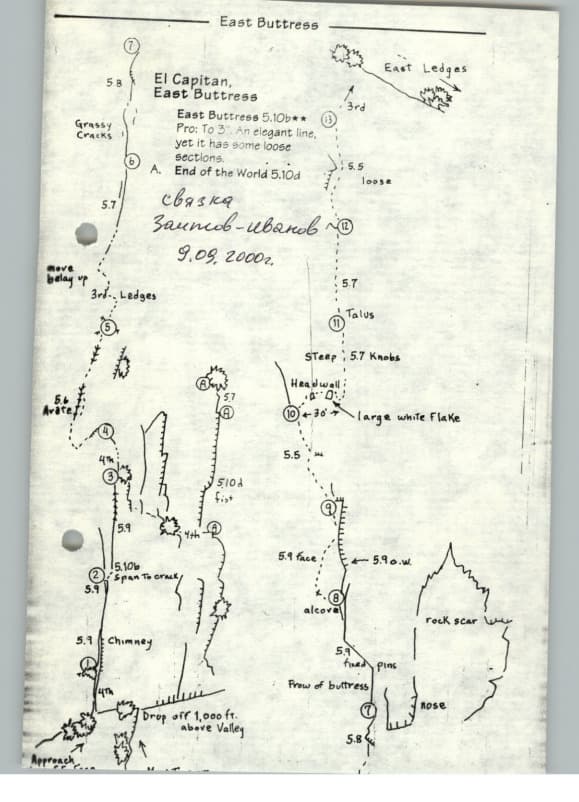 East Buttress
7
5.8
Grassy
Cracks
6
5.7
move
belay up
3rd Ledges
5
5.6
4
4th
3
5.9
5.10b
Span To crack
2
5.9
5.9 Chimney
1
4th
Drop off 1,000 ft.
above Valley
Approach
El Capitan,
East Buttress
East Buttress 5.10b★★
Pro: To 3". An elegant line,
yet it has some loose
sections.
A. End of the World 5.10d
связка
Заитов-Иванов
9.09.2000г.
A
5.7
A
5.10d
fist
4th
A
East Ledges
3rd
13
5.5
loose
12
5.7
11
Talus
Steep 5.7 Knobs
Headwall
10
30'
large white Flake
5.5
9
5.9 face
5.9 o.w.
8
alcove
5.9
fixed pins
Prow of buttress
7
5.8
rock scar
nose